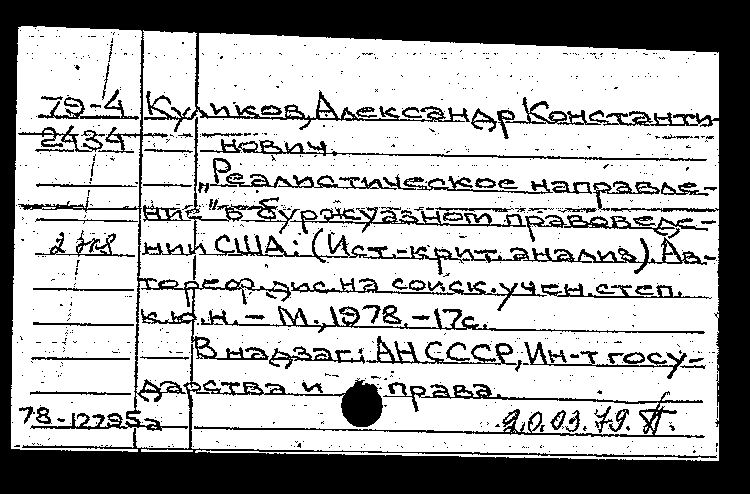 79-4 Куликов, Александр Константи-
2434 нович.
„Реалистическое направле-
ние" в буржуазном правоведе-
2 экз нии США: (Ист.-крит. анализ). Ав-
тореф. дис. на соиск. учен. степ.
к.ю.н. – М., 1978. – 17с.
В надзаг.: АН СССР, Ин-т госу-
дарства и права.
78-12795а 20.03.79. П.